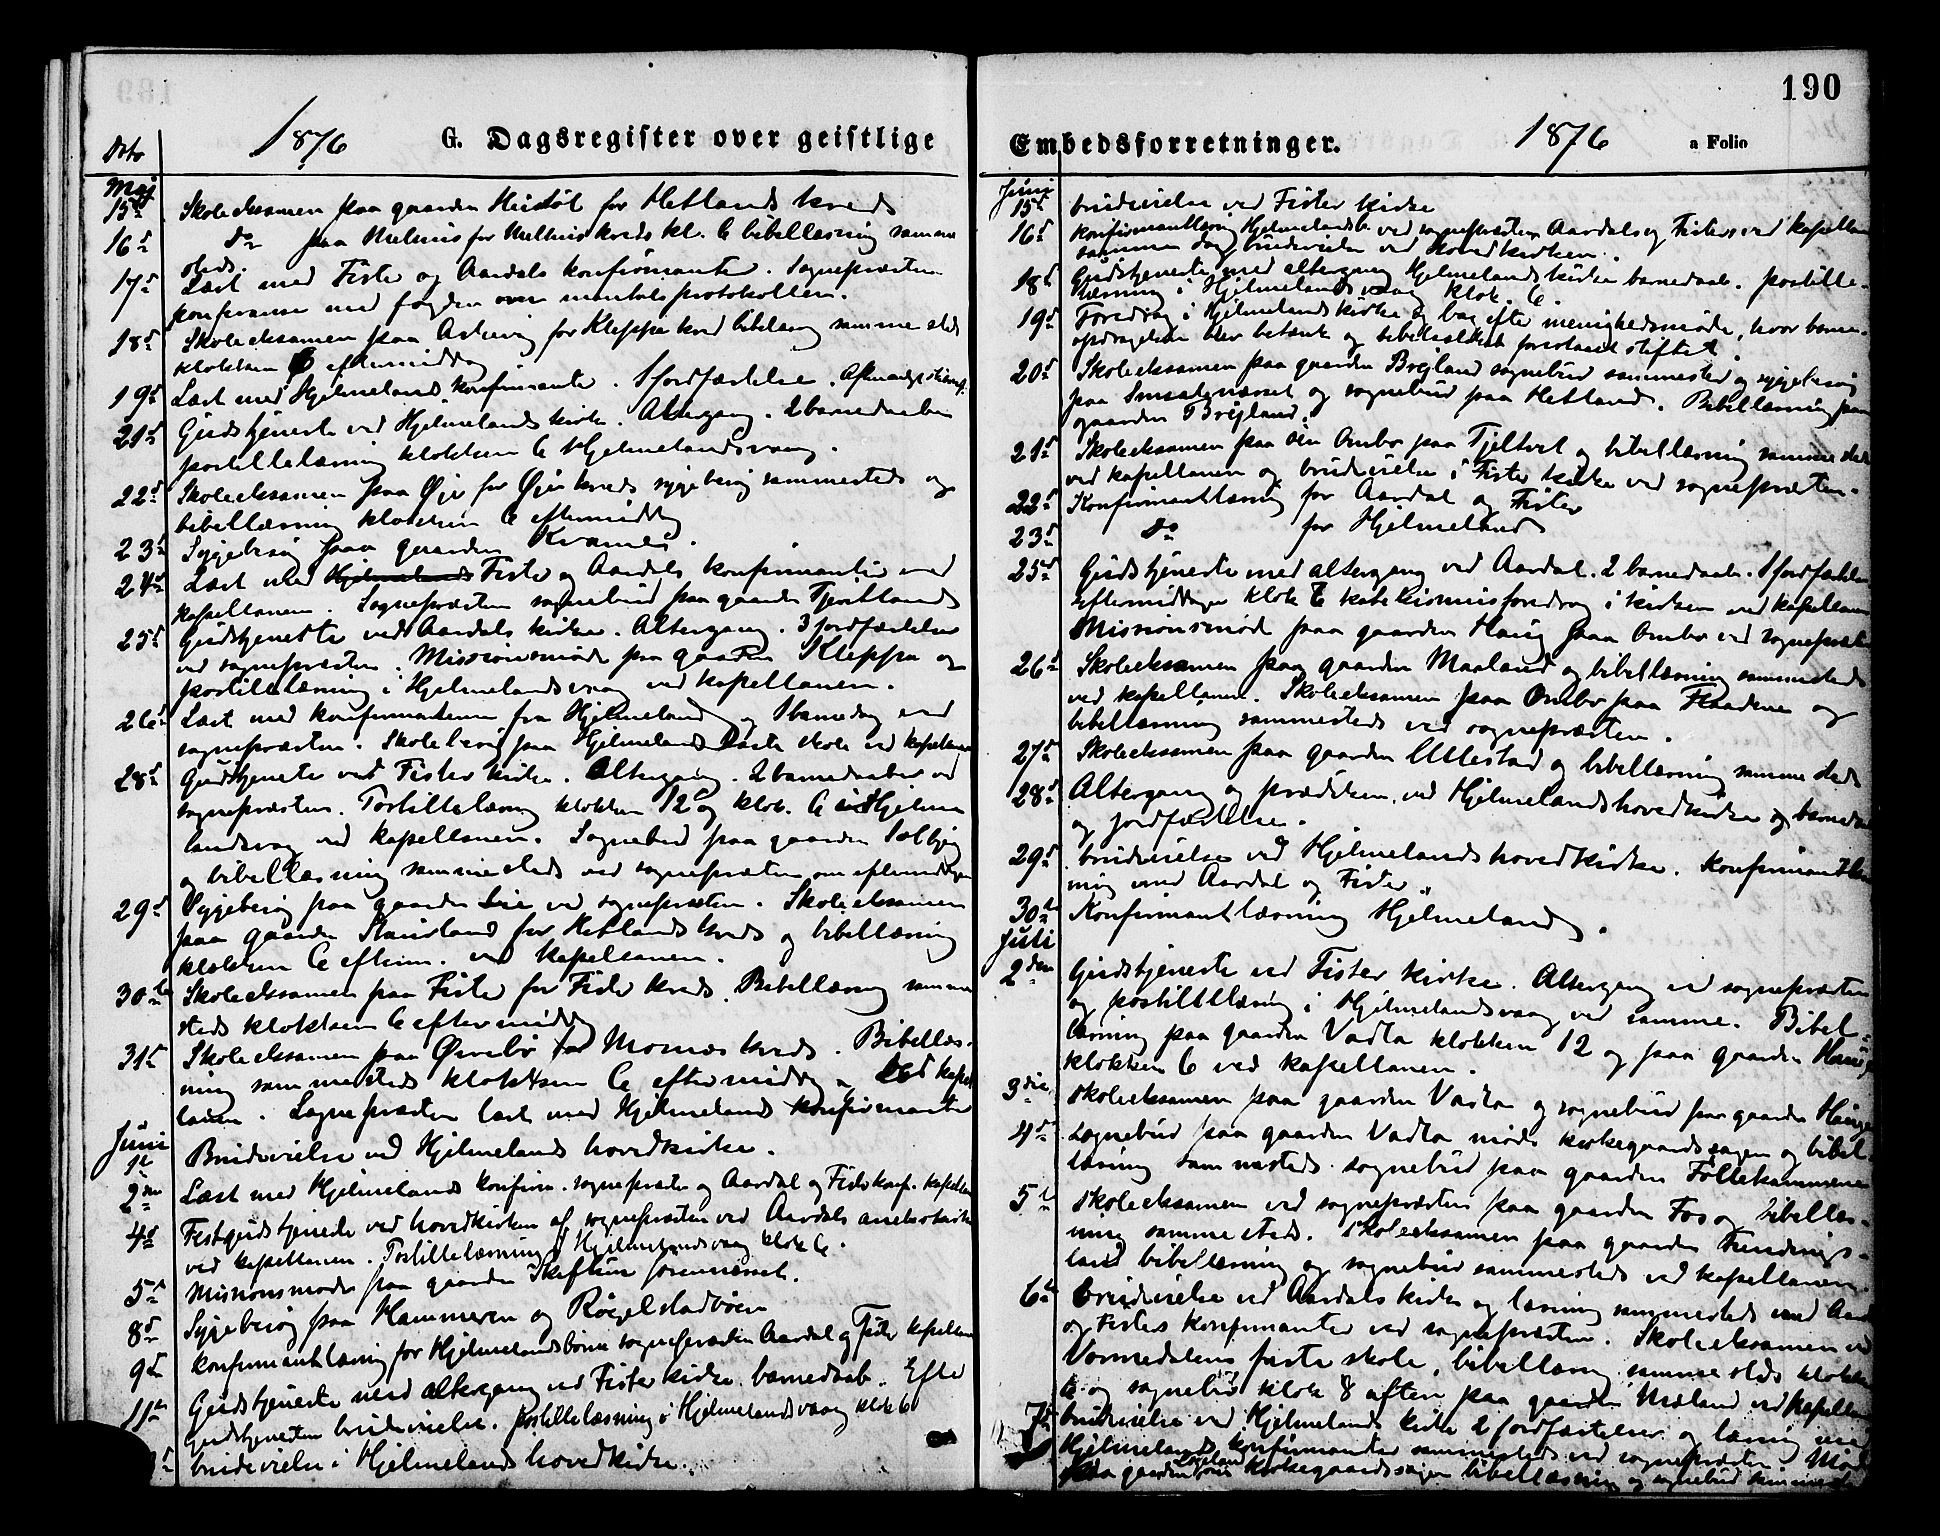 190
1876 G. Dagsregister over geistlige
Dato
Maj
15d Skoleeksamen paa gaarden for Hetlands kreds
16d do paa for kreds kl. 6 bibellæsning samme
steds.
17d Læst med Fister og Aardals konfirmanter. Sognepræsten
konferanse med fogden over mandtalsprotokollen.
18d Skoleeksamen paa for Kleppe kreds bibellæsning samme sted
klokken 6 eftermiddag
19d Læst med Hjelmelands konfirmanter. 1 jordfæstelse.
21d Gudstjeneste ved Hjelmelands kirke. Altergang. 2 barnedaaber
postillelæsning klokken 6 Hjelmelandsvaag.
22d Skoleeksamen paa Øje for Øje kreds sygebesøg sammesteds og
bibellæsning klokken 6 eftermiddag
23d Sygebesøg paa gaarden
24d Læst med Hjelmelands Fister og Aardals konfirmanter ved
kapellanen. Sognepræsten sognebud paa gaarden
25d Gudstjeneste ved Aardals kirke. Altergang. 3 jordfæstelser
ved sognepræsten. Missionsmøde paa gaarden Kleppa og
postillelæsning i Hjelmelandsvaag ved kapellanen.
26d Læst med konfirmanterne fra Hjelmeland og 1 barnedaab ved
sognepræsten. Skolebesøg paa Hjelmelands faste skole ved kapellanen
28d Gudstjeneste ved Fister kirke. Altergang. 2 barnedaaber ved
sognepræsten. Postillelæsning klokken 12 og klok. 6 i Hjelme
landsvag ved kapellanen. Sognebud paa gaarden
og bibellæsning sammesteds ved sognepræsten om eftermiddagen
29d Sygebesøg paa gaarden ved sognepræsten. Skoleeksamen
paa gaarden for Hetlands kreds og bibellæsning
klokken 6 efterm. ved kapellanen.
30te Skoleeksamen paa Fister for Fister kreds. Bibellæsning samme
steds klokken 6 eftermiddag
31d Skoleeksamen paa Øvrebø for kreds. Bibellæs-
ning sammesteds klokken 6 eftermiddag ved kapel
lanen. Sognepræsten læst med Hjelmelands konfirmanter
Juni
1te Brudevielse ved Hjelmelands hovedkirke.
2den Læst med Hjelmelands konfirm. sognepræsten og Aardal og Fister konf. kapellan
4d Festgudstjeneste ved hovedkirken af sognepræsten ved Aardals annekskirke
ved kapellanen. Postillelæsning i Hjelmelandsvaag klok 6.
5d Missionsmøde paa gaarden
8d Sygebesøg paa Hammeren og
9d konfirmantlæsning for Hjelmelandsbørn sognepræsten Aardal og Fister kapellan
11te Gudstjeneste med altergang ved Fister kirke. barnedaab. Efter
gudstjenesten brudevielse. postillelæsning i Hjelmelandsvaag klok 6
brudevielse i Hjelmelands hovedkirke.
Embedsforretninger. 1876 a Folio
Juni
15d brudevielse ved Fister kirke
16d konfirmantlæsning Hjelmelands ved sognepræsten Aardals og Fisters ved kapellan
samme dag brudevielse ved hovedkirken.
18d Gudstjeneste med altergang Hjelmelands kirke barnedaab. postille-
læsning i Hjelmelandsvaag klok. 6.
19d Foredrag i Hjelmelands kirke og bag efter menighedsmøde, hvor børne-
opdragelsen blev betænkt og bibelselskab stiftet.
20d Skoleeksamen paa gaarden Brejland sognebud sammested og sygebesøg
paa og sognebud paa Hetland. Bibellæsning paa
gaarden Brejland.
21d Skoleeksamen paa øen Ombo paa Tjeltvet og bibellæsning samme sted
ved kapellanen og brudevielse i Fister kirke ved sognepræsten.
22d Konfirmantlæsning for Aardal og Fister
23d do for Hjelmeland
25d Gudstjeneste med altergang ved Aardal. 2 barnedaab. 1 jordfæstelse
Eftermiddagen klok 6 katekismusforedrag i kirken ved kapellanen
Missionsmøde paa gaarden Haug paa Ombo ved sognepræsten
26d Skoleeksamen paa gaarden Maaland og bibellæsning sammesteds
ved kapellanen. Skoleeksamen paa Ombo paa og
bibellæsning sammesteds ved sognepræsten.
27d Skoleeksamen paa gaarden Ullestad og bibellæsning samme steds
28d Altergang og prædiken ved Hjelmelands hovedkirke og barnedaab
og jordfæstelse.
29d brudevielse ved Hjelmelands hovedkirke. Konfirmantlæs
ning med Aardal og Fister.
30te Konfirmantlæsning Hjelmeland.
Juli
2den Gudstjeneste ved Fister kirke. Altergang ved sognepræsten
og postillelæsning i Hjelmelandsvaag ved samme. Bibel-
læsning paa gaarden Vadla klokken 12 og paa gaarden Hauge
klokken 6 ved kapellanen.
3die skoleeksamen paa gaarden Vadla og sognebud paa gaarden Hauge
4d sognebud paa gaarden Vadla møde kirkegaardssagen og bibel
læsning sammesteds. sognebud paa gaarden Follekammeren
5te skoleeksamen ved sognepræsten paa gaarden og bibellæs-
ning sammesteds. Skoleeksamen paa gaarden Fundings-
land bibellæsning og sognebud sammesteds ved kapellanen.
6te Brudevielse ved Aardals kirke og læsning sammesteds med Aardal
og Fisters konfirmanter ved sognepræsten. Skoleeksamen ved
Vormedalens faste skole, bibellæsning samme steds klokken
6 og sognebud klok 8 aften paa gaarden Mæland ved kapellan
7d brudevielse ved Hjelmelands kirke 2 jordfæstelser og læsning med
Hjelmelands konfirmanter sammesteds ved sognepræsten. Møde
paa gaarden kirkegaardssagen bibellæsning og sognebud sammesteds